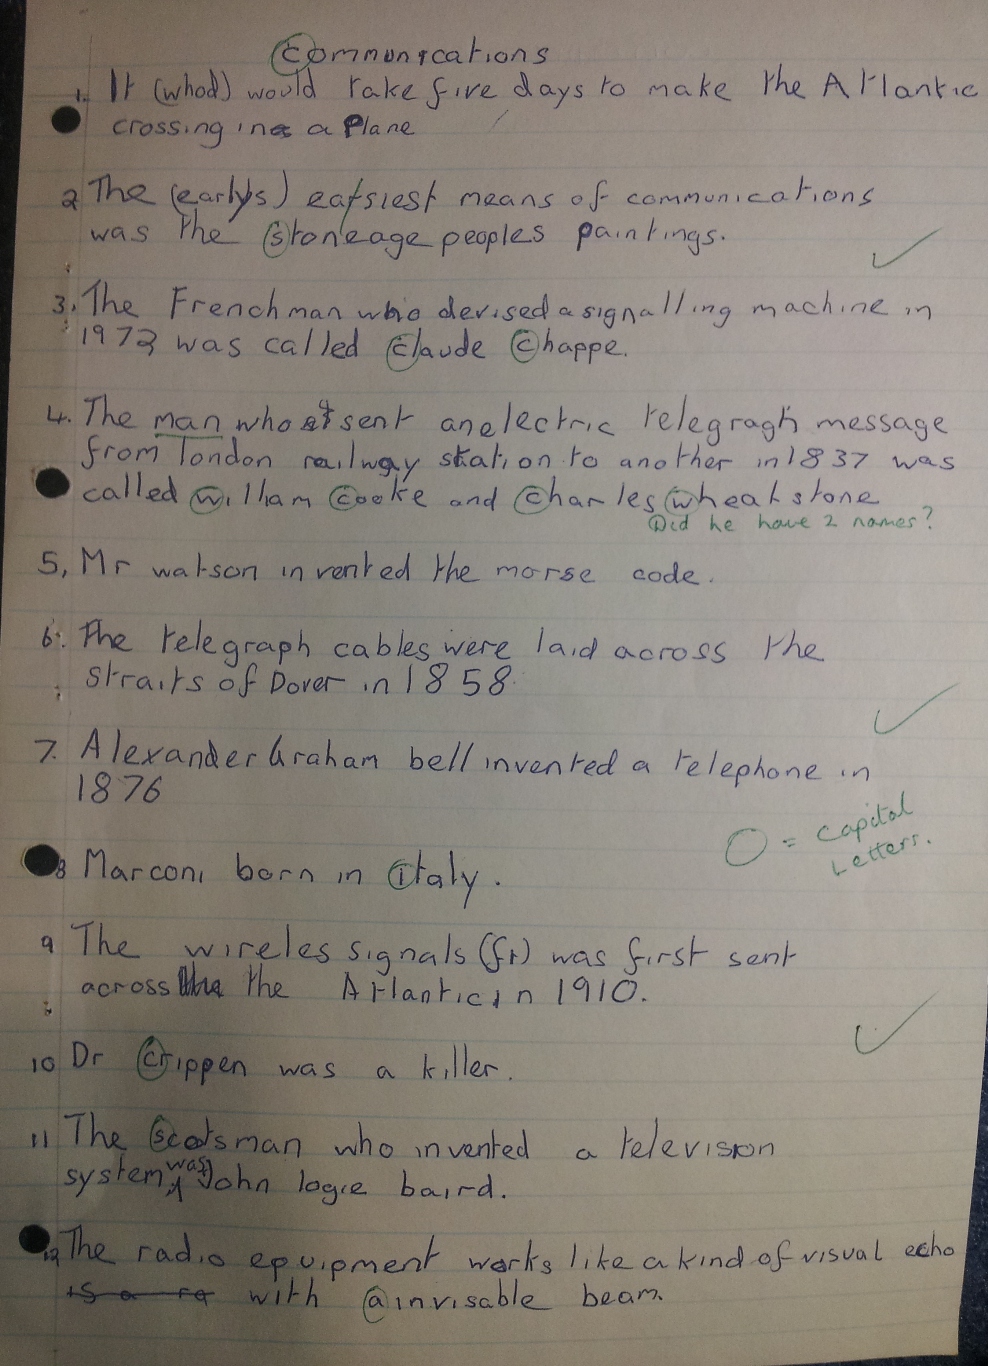 communications
1. It (whod) would take five days to make the Atlantic
crossing in a Plane
2 The (earlys) eatsiest means of communications
was the stoneage peoples paintings.
3. The Frenchman who devised a signalling machine in
1972 was called claude chappe.
4. The man who sent an electric telegragh message
from London railway station to another in 1837 was
called william cooke and charles wheatstone
Did he have 2 names?
5, Mr watson invented the morse code.
6. The telegraph cables were laid across the
straits of Dover in 1858
7. Alexander Graham bell invented a telephone in
1876
O = capital
Letters.
8 Marconi born in italy.
9 The wireles signals (fr) was first sent
across the the Atlantic in 1910.
10 Dr crippen was a killer.
11 The scotsman who invented a television
system, was John logie baird.
12 The radio epuipment works like a kind of visual echo
is a ra with a invisable beam.